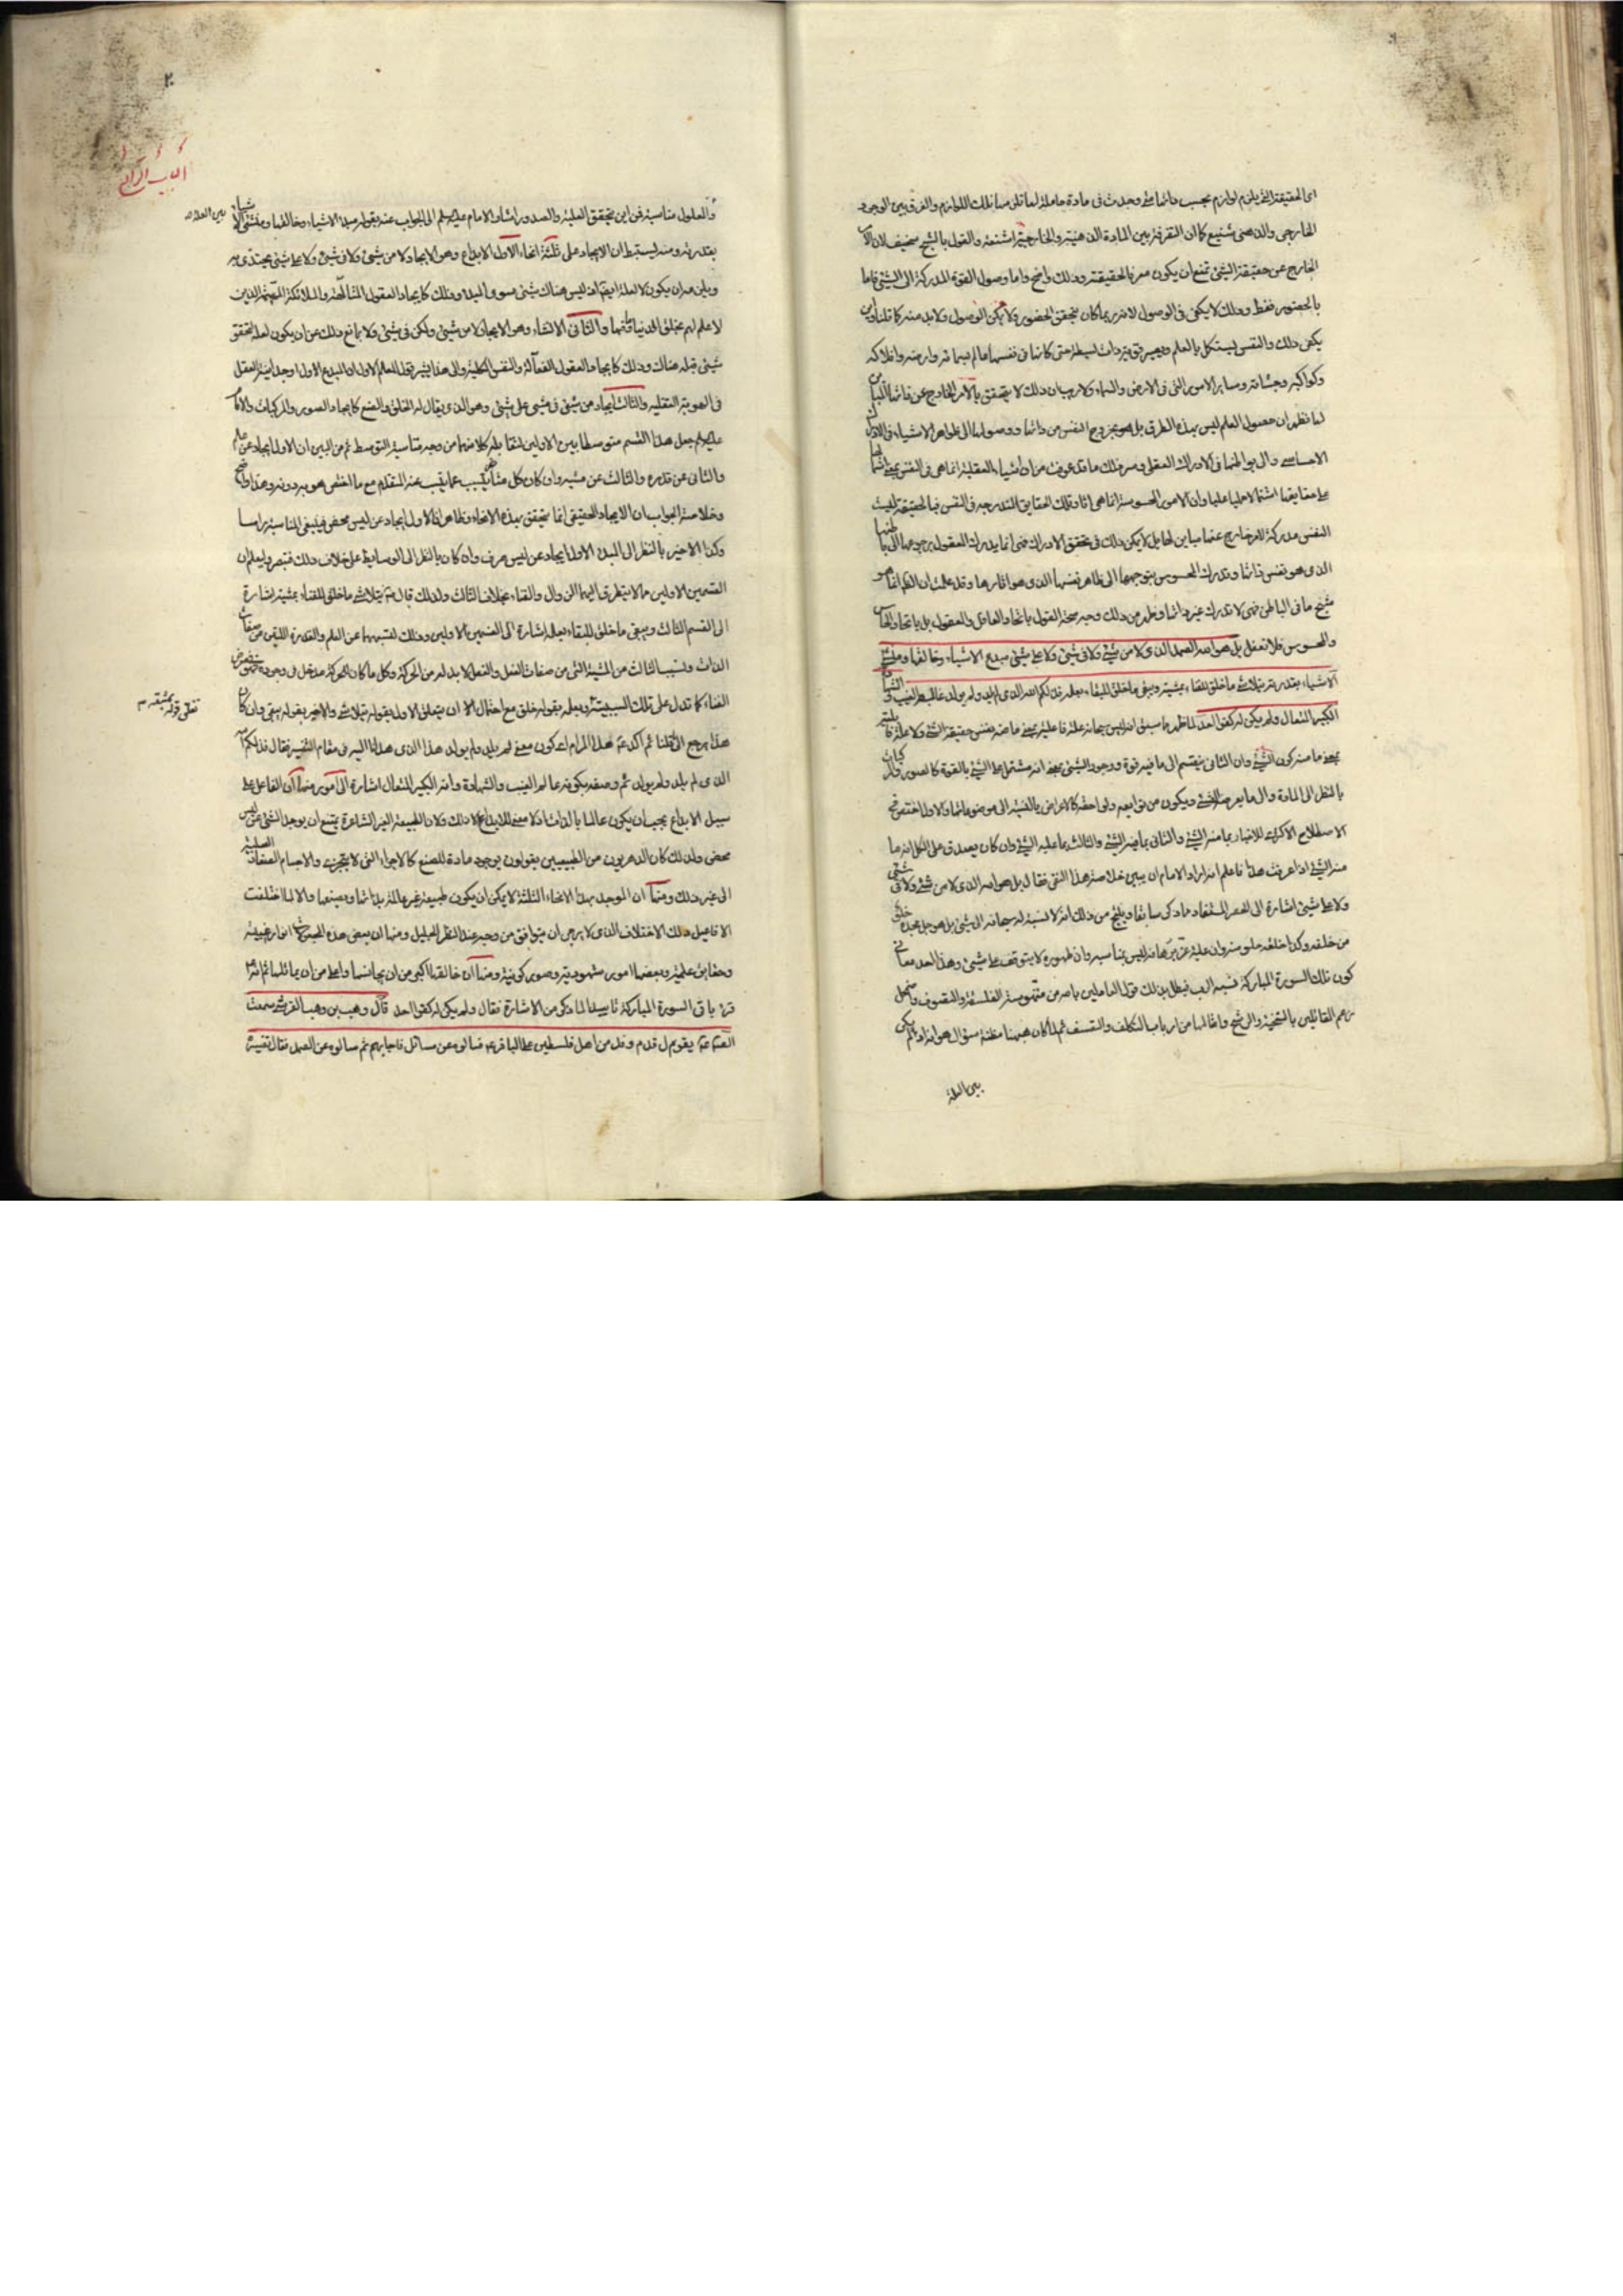 الخارجي والذهني شنيع كما ان التفرقة بين المادة الذهنية والخارجية اشنع والقول بالشبح سخيف لان
الخارج عن حقيقة الشيء تمتنع ان يكون معرفا لحقيقته وذلك واضح واما وصول القوة المدركة الى الشيء فاما
بالحضور فقط وذلك لا يكفي في الوصول لانه ربما كان يتحقق الحضور ولا يكون الوصول ولابد منه كما قلنا
يكفي ذلك والنفس ليستكمل بالعلم ويصير حتى كانها في نفسها عالم بسمائه وارضه وافلاكه
وكواكبه وسائر الامور التي في الارض والسماء ولا ريب ان ذلك لا يتحقق بالامر الخارج عن ذاتها
لما نظهر ان حصول العلم ليس بهذه الطرق بل هو بخروج النفس من ذاتها ووصولها الى ظواهر الاشياء في الادراك
الاحساسي والى بواطنها في الادراك العقلي ومع ذلك ما قد عرفت من ان الاشياء العقلية انما هي في النفس
على حقايقها اشتمالا جمليا عليا وان الامور المحسوسة انما هي اثار تلك الحقايق المندرجة في النفس فبالحقيقة ليست
النفس مدركة لامر خارج عنها مباين لها بل لا يمكن ذلك في تحقق الادراك فهي انما يدرك المعقول برجوعها الى باطنها
الذي هو نفس ذاتها وتدرك المحسوس بتوجهها الى ظاهر نفسها الذي هو اثارها وقد علمت ان الظاهر انما هو
شبح ما في الباطن فهي لا تدرك غير ذاتها وظهر من ذلك وجه صحة القول باتحاد العاقل والمعقول بل باتحاد الحاس
والمحسوس فلا تغفل بل هو الله الصمد الذي لا من شيء ولا في شيء ولا على شيء مبدع الاشياء وخالقها ومنشئ
الاشياء بقدرته يتلاشى ما خلق للفناء بمشيته ويبقى ما خلق للبقاء بعلمه فذلكم الله الذي لم يلد ولم يولد عالم الغيب والشهادة
الكبير المتعال ولم يكن له كفوا احد لما ظهر مما سبق انه ليس سبحانه علة فاعلية بمعنى ما منه بنفس حقيقة الشيء ولا علة قابلية
بمعنى ما منه كون الشيء وان الثاني ينقسم الى ما فيه قوة ووجود الشيء بمعنى انه مشتمل على الشيء بالقوة كالصور
بالنظر الى المادة والى ما يعرضه الشيء ويكون من توابعه ولواحقه كالاعراض بالنسبة الى موضوعاتها والاول اختص في
الاصطلاح الاكثري للاخبار بما منه الشيء والثاني بما فيه الشيء والثالث بما عليه الشيء وان كان يصدق على الكل انه ما
منه الشيء اذا عرفت هذا فاعلم انه اراد الامام ان يبين خلاصة هذا النفي فقال بل هو الله الذي لا من شيء ولا في شيء
ولا على شيء اشارة الى الحصر المستفاد مما ذكر سابقا وينتج من ذلك انه لا نسبة له سبحانه الى شيء بل هو جل مجده خلو
من خلقه وكذا خلقه خلو منه وان علية عز برهانه ليس بمناسبة وان ظهوره لا يتوقف على شيء وهذا احد معاني
كون تلك السورة المباركة نسبة الرب فبطل بذلك قول العاملين باصره من متهوسة الفلسفة والتصوف
زعم القائلين بالسنخية والرشح وامثالها من ارباب التكلف والتعسف ثم لما كان ههنا مظنة سؤال هو انه اذا لم يكن
بين العلة
٢
والمعلول مناسبة فمن اين يتحقق العلية والصدور اشار الامام عليه السلم الى الجواب عنه بقوله مبدع الاشياء وخالقها ومنشئ الاشياء
بقدرته ومنه يستنبط ان الايجاد على ثلثة انحاء الاول الابداع وهو الايجاد لا من شيء ولا في شيء ولا على شيء يحتذى به
ويلزمه ان يكون لا لعلة ايضا اذ ليس هناك شيء سوى المبدا وذلك كايجاد العقول المتالهة والملائكة المهيمة الذين
لا علم لهم بخلق الدنيا وما فيها والثاني الانشاء وهو الايجاد لا من شيء ولكن في شيء ولا يمانع ذلك عن ان يكون لعلة تحقق
شيء قبله هناك وذلك كايجاد العقول الفعالة والنفس الكلية والى هذا يشير قول المعلم الاول ان المبدع الاول اوجد انية العقل
في الهوية العقلية والثالث ايجاد من شيء في شيء على شيء وهو الذي يقال له الخلق والصنع كايجاد الصور والمركبات والامام
عليه السلم جعل هذا القسم متوسطا بين الاولين لتقابله كلا منهما من وجه مناسبة التوسط ثم من البين ان الاول ايجاد عن علم
والثاني عن قدرة والثالث عن مشية وان كان كل منها يتسبب عما يتسبب عنه المتقدم مع ما اختص هو به دونه وهذا واضح
وخلاصة الجواب ان الايجاد الحقيقي انما يتحقق بهذه الانحاء وظاهر ان الاول ايجاد عن ليس محض فينبغي المناسبة راسا
وكذا الاخير بالنظر الى المبدا الاول ايجاد عن ليس صرف وان كان بالنظر الى الوسايط على خلاف ذلك فتبصر وليعلم ان
القسمين الاولين مما لا يتطرق اليهما الزوال والفناء بخلاف الثالث ولذلك قال يتلاشى ما خلق للفناء بمشيته اشارة
الى القسم الثالث ويبقى ما خلق للبقاء بعلمه اشارة الى القسمين الاولين وذلك لتسببهما عن العلم والقدرة اللتين من صفات
الذات وتسبب الثالث من المشية التي من صفات الفعل والفعل لابد له من الحركة وكل ما كان للحركة مدخل في وجوده
الفناء كما تدل على تلك السببية بعلمه بقوله خلق مع احتمال ان يتعلق الاول بقوله يتلاشى والاخير بقوله يبقى وان كان
هذا يرجع الى ما قلنا ثم اكد هذا المرام اي كون معنى لم يلد ولم يولد هذا الذي هدانا اليه في مقام التفسير فقال فذلكم الله
الذي لم يلد ولم يولد ثم وصفه بكونه عالم الغيب والشهادة وانه الكبير المتعال اشارة الى امور منها ان الفاعل على
سبيل الابداع يجب ان يكون عالما بالذات اذ لا معنى للابداع الا ذلك ولان الطبيعة الغير الشاعرة يمتنع ان يوجد الشيء عن ليس
محض ولذلك كان الدهريون من الطبيعيين يقولون بوجود مادة للصنع كالاجزاء التي لا يتجزى والاجسام الصغار الصلبة
الى غير ذلك ومنها ان الموجد بهذا الانحاء الثلثة لا يمكن ان يكون طبيعة غير عالمة بذاتها وبصنعها والا لما اختلفت
الافاعيل ذلك الاختلاف الذي لا يرجى ان يتوافق من وجه عند النظر الجليل ومنها ان بعض هذه المصنوعات انوار غيبية
وحقايق علمية وبعضها امور شهودية وصور كونية ومنها ان خالقها اكبر من ان يجانسها واعلى من ان يماثلها ثم انه
قرء باقي السورة المباركة تاسيسا لما ذكر من الاشارة فقال ولم يكن له كفوا احد قال وهب بن وهب القرشي سمعت
الصادق يقول قدم وفد من اهل فلسطين على الباقر فسالوه عن مسائل فاجابهم ثم سالوه عن الصمد فقال تفسيره